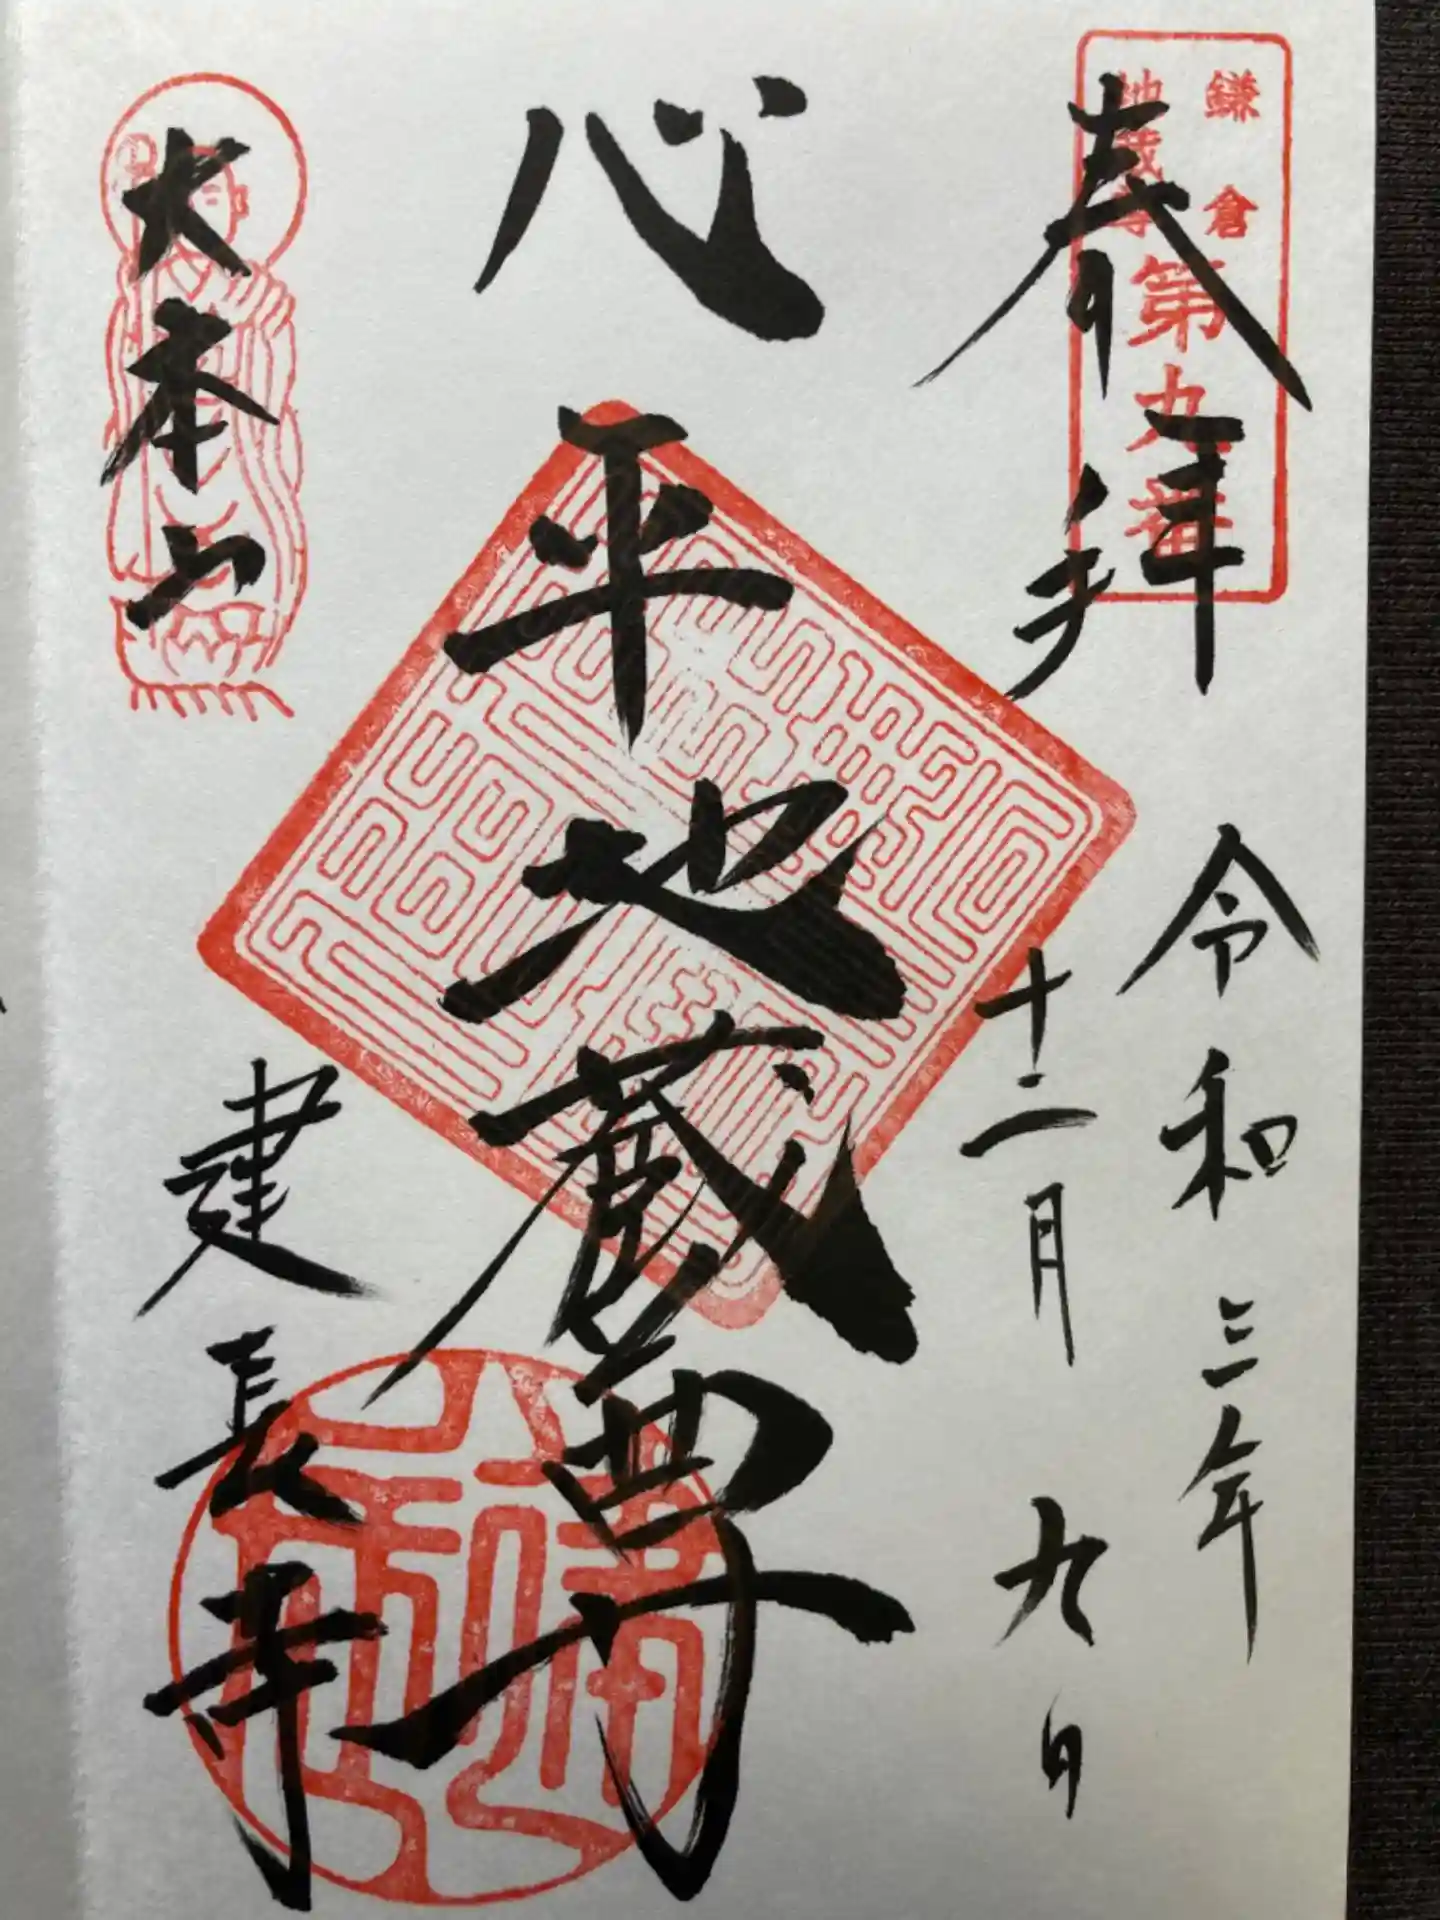 奉拝
鎌倉
地蔵尊
第九番
令和三年
十二月九日
心平地蔵尊
大本山
建長寺